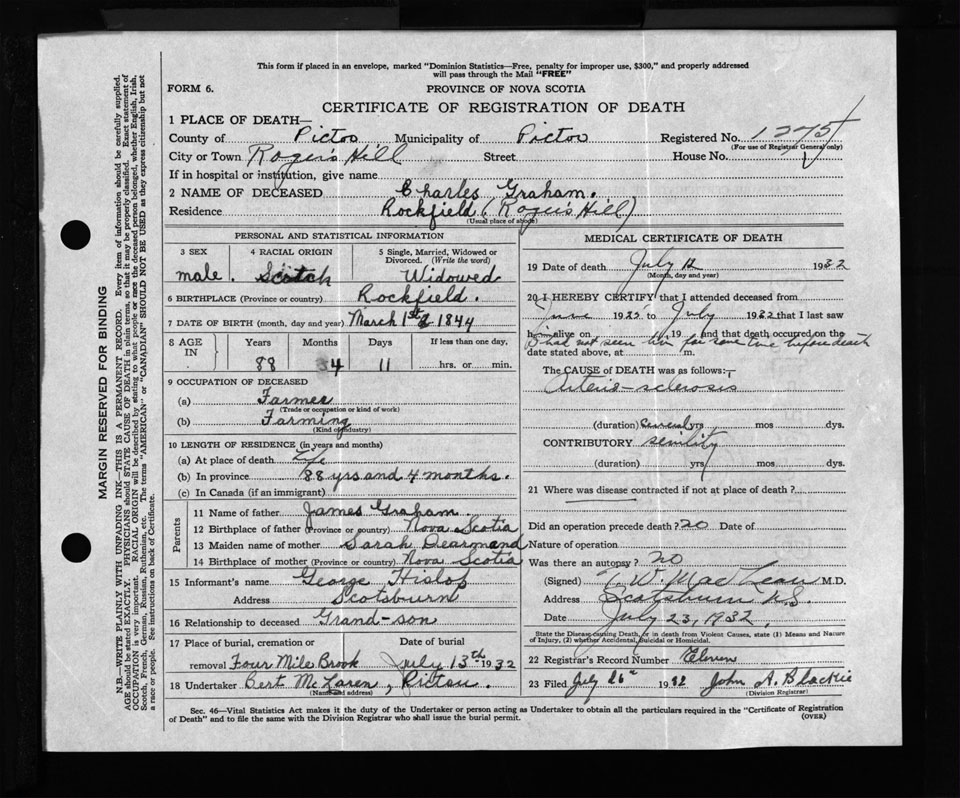 This form if placed in an envelope, marked "Dominion Statistics—Free, penalty for improper use, $300," and properly addressed
will pass through the Mail "FREE"
FORM 6.
PROVINCE OF NOVA SCOTIA
CERTIFICATE OF REGISTRATION OF DEATH
1 PLACE OF DEATH—
County of Pictou Municipality of Pictou Registered No. 1275
(For use of Registrar General only)
City or Town Roger's Hill Street House No.
If in hospital or institution, give name
2 NAME OF DECEASED Charles Graham.
Residence Rockfield (Roger's Hill)
(Usual place of abode)
PERSONAL AND STATISTICAL INFORMATION
3 SEX 4 RACIAL ORIGIN 5 Single, Married, Widowed or
Divorced. (Write the word)
male. Scotch Widowed
6 BIRTHPLACE (Province or country) Rockfield.
7 DATE OF BIRTH (month, day and year) March 1st 1844
8 AGE IN Years Months Days If less than one day,
88 4 11 hrs. or min.
9 OCCUPATION OF DECEASED
(a) Farmer
(Trade or occupation or kind of work)
(b) Farming
(Kind of industry)
10 LENGTH OF RESIDENCE (in years and months)
(a) At place of death Life
(b) In province 88 yrs and 4 months.
(c) In Canada (if an immigrant)
Parents
11 Name of father James Graham.
12 Birthplace of father (Province or country) Nova Scotia
13 Maiden name of mother Sarah Dearmand
14 Birthplace of mother (Province or country) Nova Scotia
15 Informant's name George Hislop
Address Scotsburn
16 Relationship to deceased Grand-son
17 Place of burial, cremation or Date of burial
removal Four Mile Brook July 13th 1932
18 Undertaker Bert McLaren, Pictou.
(Name and address)
MEDICAL CERTIFICATE OF DEATH
19 Date of death July 12 1932
(Month, day and year)
20 I HEREBY CERTIFY that I attended deceased from
June 1925 to July 1932 that I last saw
h im alive on 19 and that death occurred on the
I had not seen him for some time before death
date stated above, at m.
The CAUSE of DEATH was as follows:—
Arterio-sclerosis
(duration) several yrs mos dys.
CONTRIBUTORY senility
(duration) yrs mos dys.
21 Where was disease contracted if not at place of death?
Did an operation precede death? no Date of
Nature of operation
Was there an autopsy? no
(Signed) T. W. MacLean M.D.
Address Scotsburn N.S.
Date July 23, 1932.
State the Disease causing Death, or in death from Violent Causes, state (1) Means and Nature
of Injury, (2) whether Accidental, Suicidal or Homicidal.
22 Registrar's Record Number Eleven
23 Filed July 26th 1932 John A. Blackie
(Division Registrar)
Sec. 46—Vital Statistics Act makes it the duty of the Undertaker or person acting as Undertaker to obtain all the particulars required in the "Certificate of Registration
of Death" and to file the same with the Division Registrar who shall issue the burial permit. (OVER)
MARGIN RESERVED FOR BINDING
N.B.—WRITE PLAINLY WITH UNFADING INK—THIS IS A PERMANENT RECORD. Every item of information should be carefully supplied.
AGE should be stated EXACTLY. PHYSICIANS should STATE CAUSE OF DEATH in plain terms, so that it may be properly classified. Exact statement of
OCCUPATION is very important. RACIAL ORIGIN will be described by stating to what people or race the deceased person belonged, whether English, Irish,
Scotch, French, German, Russian, Ruthenian, etc. The terms "AMERICAN" or "CANADIAN" SHOULD NOT BE USED as they express citizenship but not
a race or people. See instructions on back of Certificate.